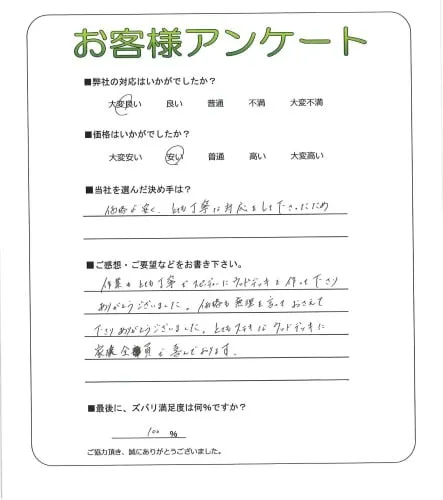 お客様アンケート
■弊社の対応はいかがでしたか？
大変良い 良い 普通 不満 大変不満
■価格はいかがでしたか？
大変安い 安い 普通 高い 大変高い
■当社を選んだ決め手は？
価格が安く、とても丁寧に対応をして下さったため
■ご感想・ご要望などをお書き下さい。
作業もとても丁寧でスピーディーにウッドデッキを作って下さり
ありがとうございました。価格も無理を言っておさえて
下さりありがとうございました。とてもステキなウッドデッキに
家族全員で喜んでおります。
■最後に、ズバリ満足度は何％ですか？
100 %
ご協力頂き、誠にありがとうございました。